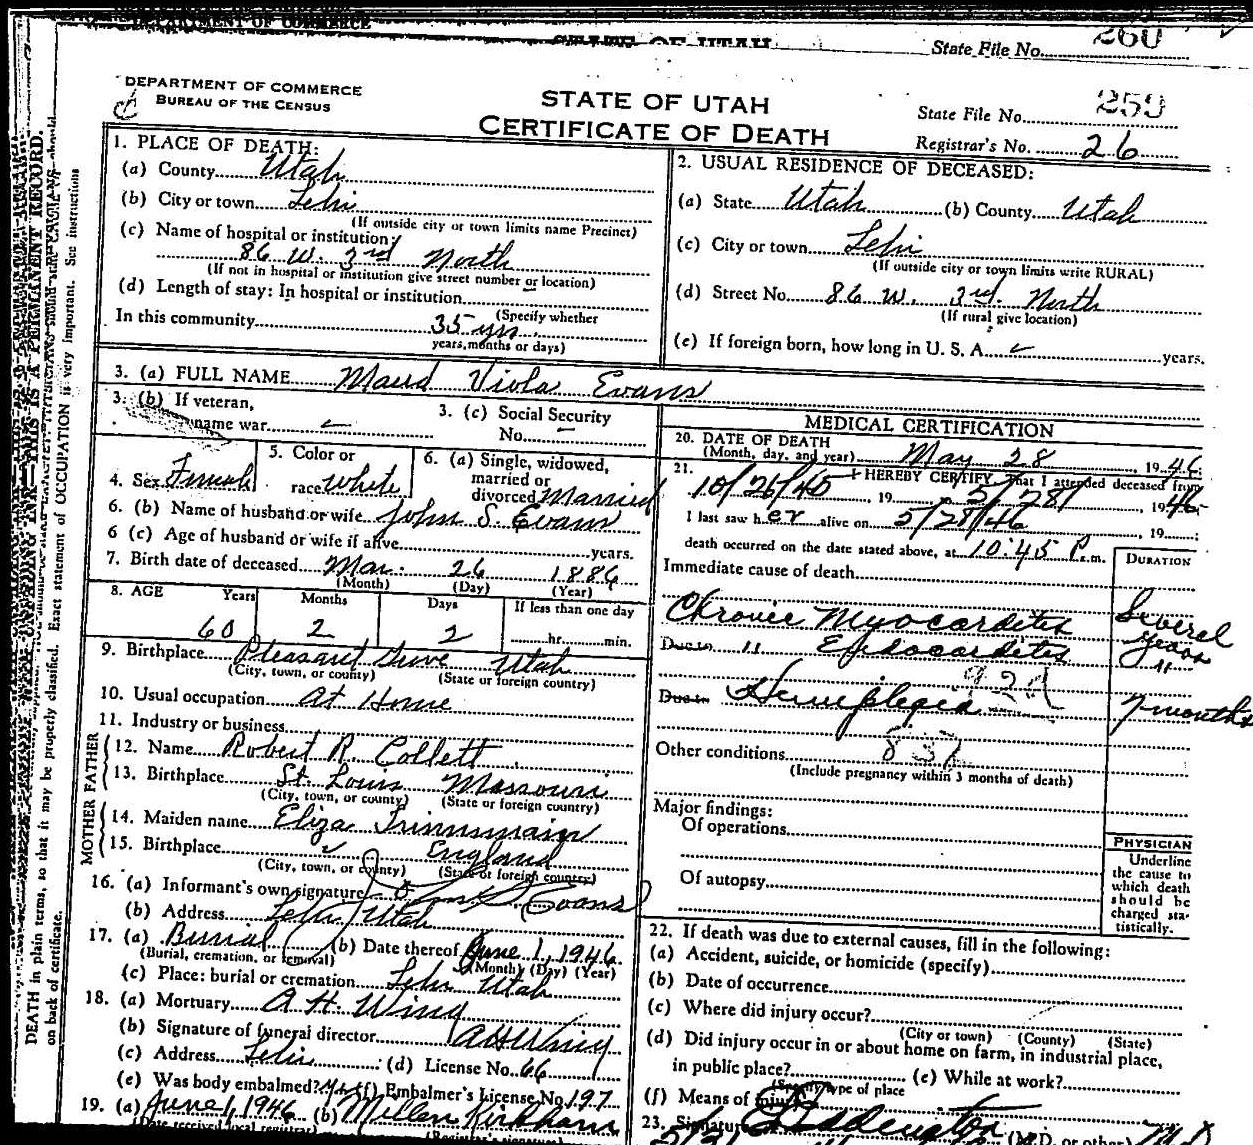 DEPARTMENT OF COMMERCE
STATE OF UTAH
State File No. 260
DEPARTMENT OF COMMERCE
BUREAU OF THE CENSUS
STATE OF UTAH
CERTIFICATE OF DEATH
State File No. 259
Registrar's No. 26
1. PLACE OF DEATH:
(a) County Utah
(b) City or town Lehi
(If outside city or town limits name Precinct)
(c) Name of hospital or institution:
86 W. 3rd North
(If not in hospital or institution give street number or location)
(d) Length of stay: In hospital or institution
(Specify whether
In this community 35 yrs.
years, months or days)
2. USUAL RESIDENCE OF DECEASED:
(a) State Utah (b) County Utah
(c) City or town Lehi
(If outside city or town limits write RURAL)
(d) Street No. 86 W. 3rd. North
(If rural give location)
(e) If foreign born, how long in U. S. A. years.
3. (a) FULL NAME Maud Viola Evans
3. (b) If veteran,
name war
3. (c) Social Security
No. -
4. Sex Female
5. Color or
race White
6. (a) Single, widowed,
married or
divorced Married
6. (b) Name of husband or wife John S. Evans
6 (c) Age of husband or wife if alive years.
7. Birth date of deceased Mar. 26 1886
(Month) (Day) (Year)
8. AGE Years Months Days If less than one day
60 2 2 hr. min.
9. Birthplace Pleasant Grove Utah
(City, town, or county) (State or foreign country)
10. Usual occupation At Home
11. Industry or business
FATHER
12. Name Robert R. Collett
13. Birthplace St. Louis Missouri
(City, town, or county) (State or foreign country)
MOTHER
14. Maiden name Eliza
15. Birthplace England
(City, town, or county) (State or foreign country)
16. (a) Informant's own signature John S. Evans
(b) Address Lehi Utah
17. (a) Burial (b) Date thereof June 1, 1946
(Burial, cremation, or removal) (Month) (Day) (Year)
(c) Place: burial or cremation Lehi Utah
18. (a) Mortuary A. H. Wing
(b) Signature of funeral director A H Wing
(c) Address Lehi (d) License No. 66
(e) Was body embalmed? Yes (f) Embalmer's License No. 197
19. (a) June 1, 1946 (b) Millen Kirkham
(Date received local registrar) (Registrar's signature)
MEDICAL CERTIFICATION
20. DATE OF DEATH
(Month, day, and year) May 28, 1946
21. I HEREBY CERTIFY That I attended deceased from
10/26/45, 19 5/28/, 1946
I last saw her alive on 5/28/46, 19
death occurred on the date stated above, at 10:45 P.m.
DURATION
Immediate cause of death
Chronic Myocarditis Several years
Due to " Endocarditis "
92d
Due to Hemiplegia 7 months
Other conditions
(Include pregnancy within 3 months of death)
Major findings:
Of operations
Of autopsy
PHYSICIAN
Underline
the cause to
which death
should be
charged sta-
tistically.
22. If death was due to external causes, fill in the following:
(a) Accident, suicide, or homicide (specify)
(b) Date of occurrence
(c) Where did injury occur?
(City or town) (County) (State)
(d) Did injury occur in or about home on farm, in industrial place,
in public place? (e) While at work?
(Specify type of place
(f) Means of injury
23. Signature Eddington (M.D. or other) M.D
THIS IS A PERMANENT RECORD.
Exact statement of OCCUPATION is very important. See instructions
DEATH in plain terms, so that it may be properly classified.
on back of certificate.